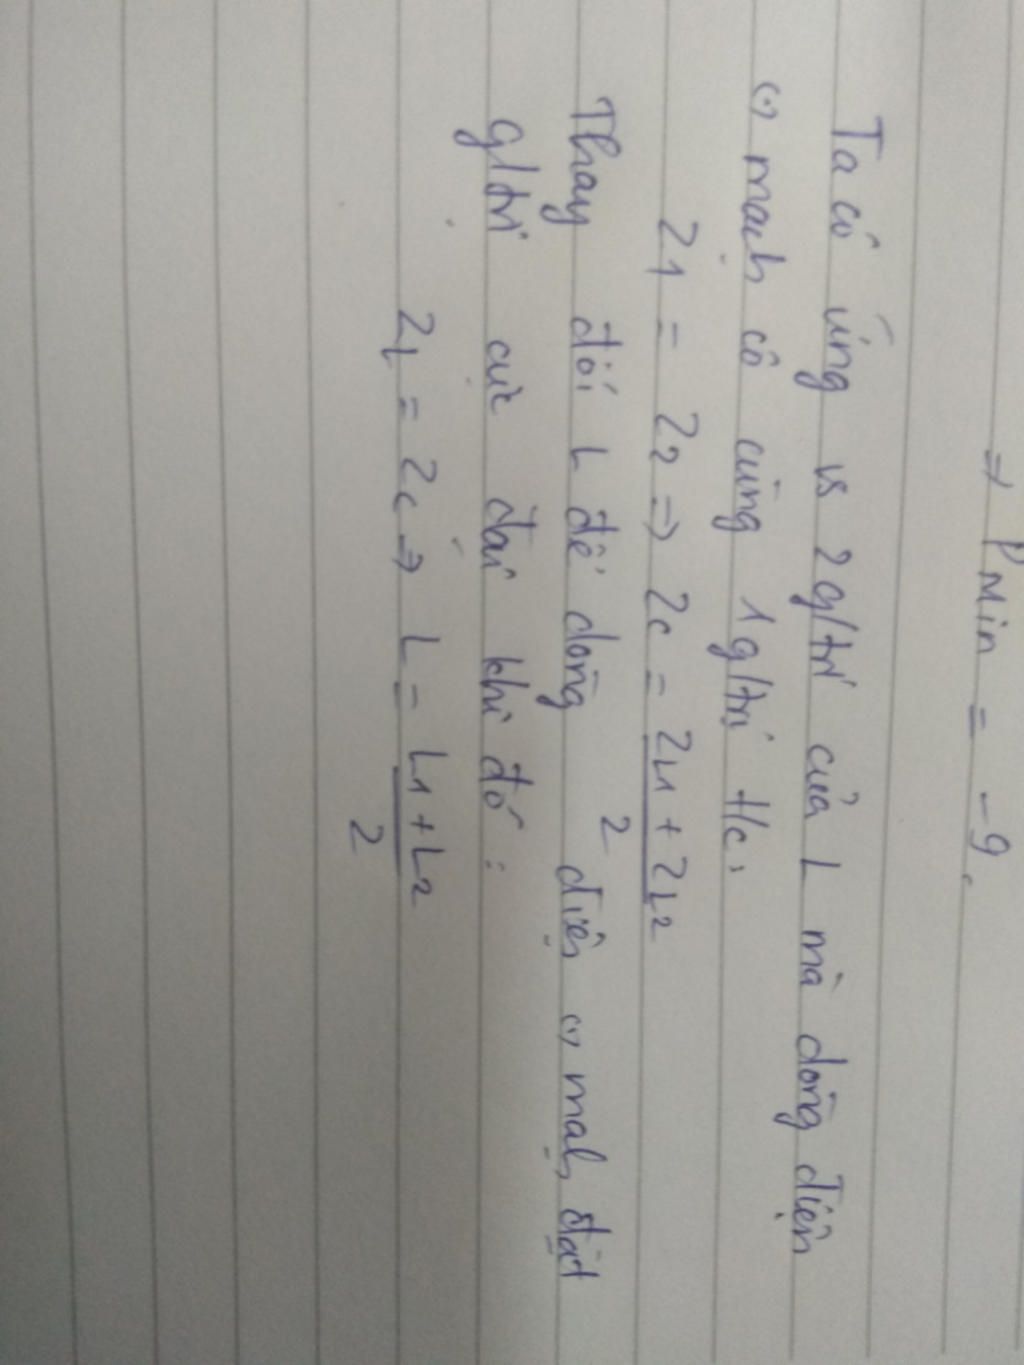 ⇒ PMin = -9.
Ta có ứng vs 2 g/trị của L mà dòng điện
(') mạch có cùng 1 g/trị t/c,
Z1 = Z2 ⇒ Zc = ZL1 + ZL2
2
Thay đổi L để dòng điện (') mạh, đạt
g/trị cực đại khi đó :
ZL = Zc ⇒ L = L1 + L2
2